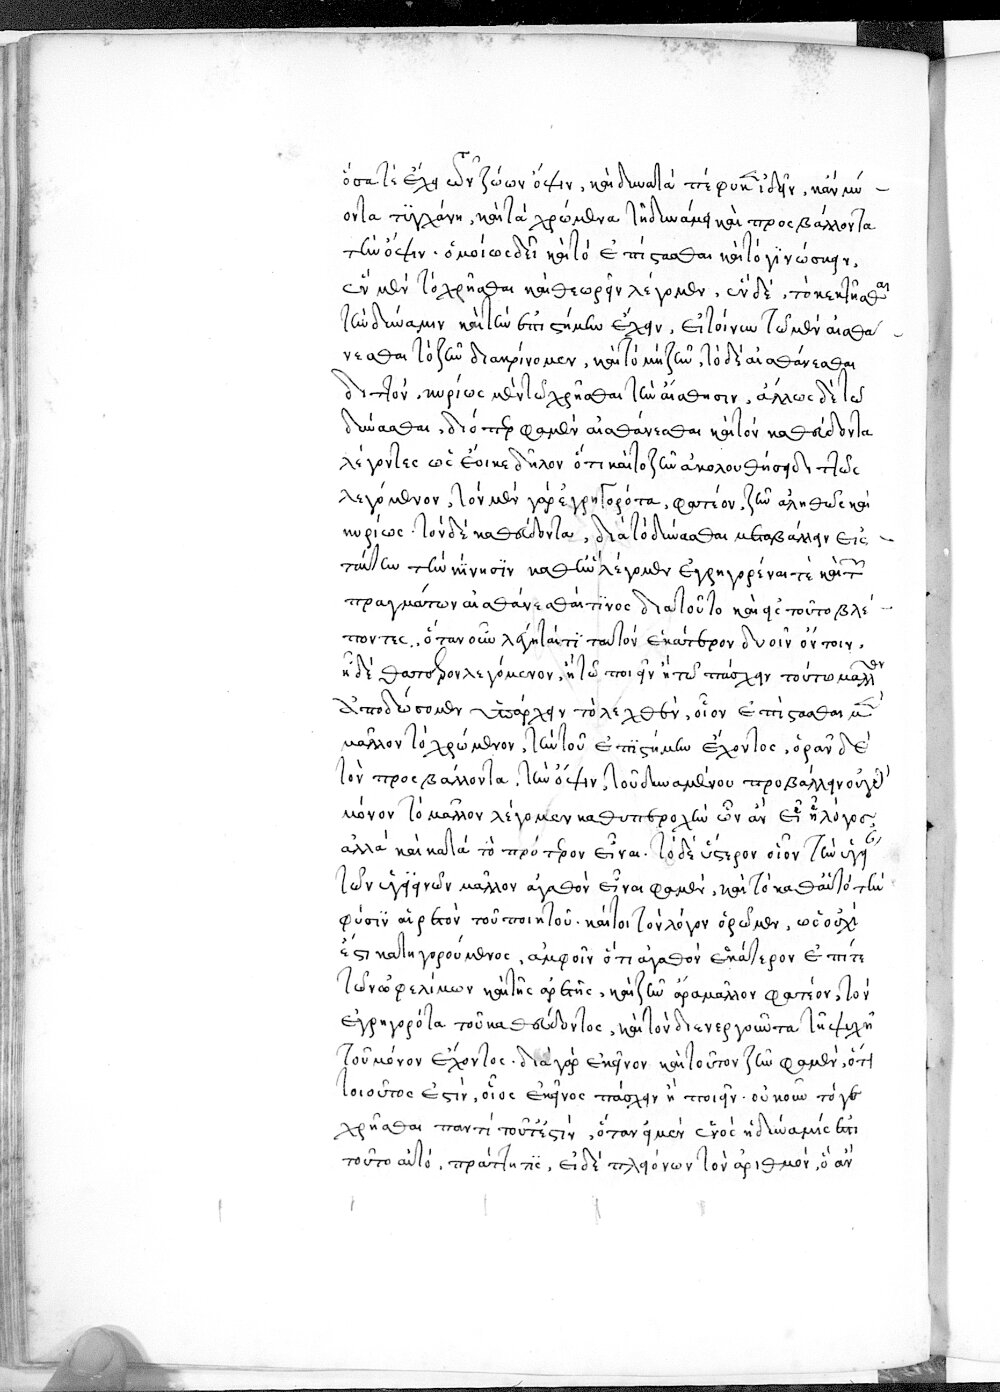 ὅσα τὲ ἔχει τῶν ζώων ὄψιν, καὶ δυνατὰ πέφυκεν ἰδεῖν, κἂν μύ-
οντα τυγχάνῃ, καὶ τὰ χρώμενα τῆ δυνάμει καὶ προσβάλλοντα
τὴν ὄψιν. ὁμοίως δεῖ καὶ τὸ ἐπίστασθαι καὶ τὸ γινώσκειν,
ἓν μὲν τὸ χρῆσθαι καὶ θεωρεῖν λέγομεν, ἓν δὲ, τὸ κεκτῆσθαι
τὴν δύναμιν καὶ τὴν ἐπιστήμην ἔχειν, εἰ τοίνυν τῶ μὲν αἰσθά-
νεσθαι τὸ ζῆν διακρίνομεν, καὶ τὸ μὴ ζῆν, τὸ δὲ αἰσθάνεσθαι
διττόν, κυρίως μὲν τῶ χρῆσθαι τὴν αἴσθησιν, ἄλλως δὲ τῶ
δύνασθαι, διόπερ φαμὲν αἰσθάνεσθαι καὶ τὸν καθεύδοντα
λέγοντες ὡς ἔοικε δῆλον ὅτι καὶ τὸ ζῆν ἀκολουθήσει διττῶς
λεγόμενον, τὸν μὲν γὰρ ἐγρηγορότα, φατέον, ζῆν ἀληθῶς καὶ
κυρίως. τὸν δὲ καθεύδοντα, διὰ τὸ δύνασθαι μεταβάλλειν εἰς-
ταύτην τὴν κίνησιν καθ' ἣν λέγομεν ἐγρηγορέναι τὲ καὶ τῶν
πραγμάτων αἰσθάνεσθαί τινος διὰ τοῦτο καὶ εἰς τοῦτο βλέ-
ποντες, ὅταν οὖν λέγηταί τι ταυτὸν ἑκάτερον δυοῖν ὄντοιν,
ἦ δὲ θάτερον λεγόμενον, ἢ τῶ ποιεῖν ἢ τῶ πάσχειν τούτω μᾶλλον
ἀποδώσομεν ὑπάρχειν τὸ λεχθέν, οἷον ἐπίστασθαι μὲν
μᾶλλον τὸ χρώμενον, τὴν τοῦ ἐπιστήμην ἔχοντος, ὁρᾶν δὲ
τὸν προσβάλλοντα, τὴν ὄψιν, τοῦ δυναμένου προβάλλειν οὐ γὰρ
μόνον τὸ μᾶλλον λέγομεν καθ' ὑπεροχὴν ὧν ἂν εἷς ἦ λόγος,
ἀλλὰ καὶ κατὰ τὸ πρότερον εἶναι. τὸ δὲ ὕστερον οἷον τὴν ὑγείαν
τῶν ὑγιεινῶν μᾶλλον ἀγαθὸν εἶναι φαμὲν, καὶ τὸ καθ' αὑτὸ τὴν
φύσιν αἱρετὸν τοῦ ποιητοῦ. καίτοι τὸν λόγον ὁρῶμεν, ὡς οὐχὶ
ἐστι κατηγορούμενος, ἀμφοῖν ὅτι ἀγαθὸν ἑκάτερον ἐπί τε
τῶν ὠφελίμων καὶ τῆς ἀρετῆς, καὶ ζῆν ἄρα μᾶλλον φατέον, τὸν
ἐγρηγορότα τοῦ καθεύδοντος, καὶ τὸν διενεργοῦντα τῆ ψυχῆ
τοῦ μόνον ἔχοντος. διὰ γὰρ ἐκεῖνον καὶ τοῦτον ζῆν φαμὲν, ὅτι
τοιοῦτος ἐστὶν, οἷος ἐκεῖνος πάσχειν ἢ ποιεῖν. οὐκοῦν τό γε
χρῆσθαι παντὶ τοῦτ' ἔστιν, ὅταν εἰ μὲν ἑνὸς ἡ δύναμίς ἐστι
τοῦτο αὐτό, πράττῃ τις, εἰ δὲ πλειόνων τὸν ἀριθμόν, ὃ ἂν